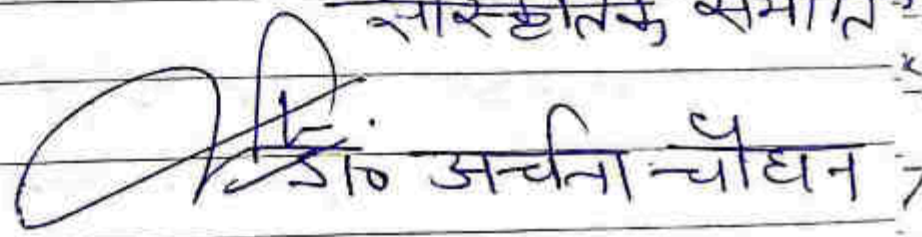 सांस्कृतिक समिति
डॉ० अर्चना चौहान